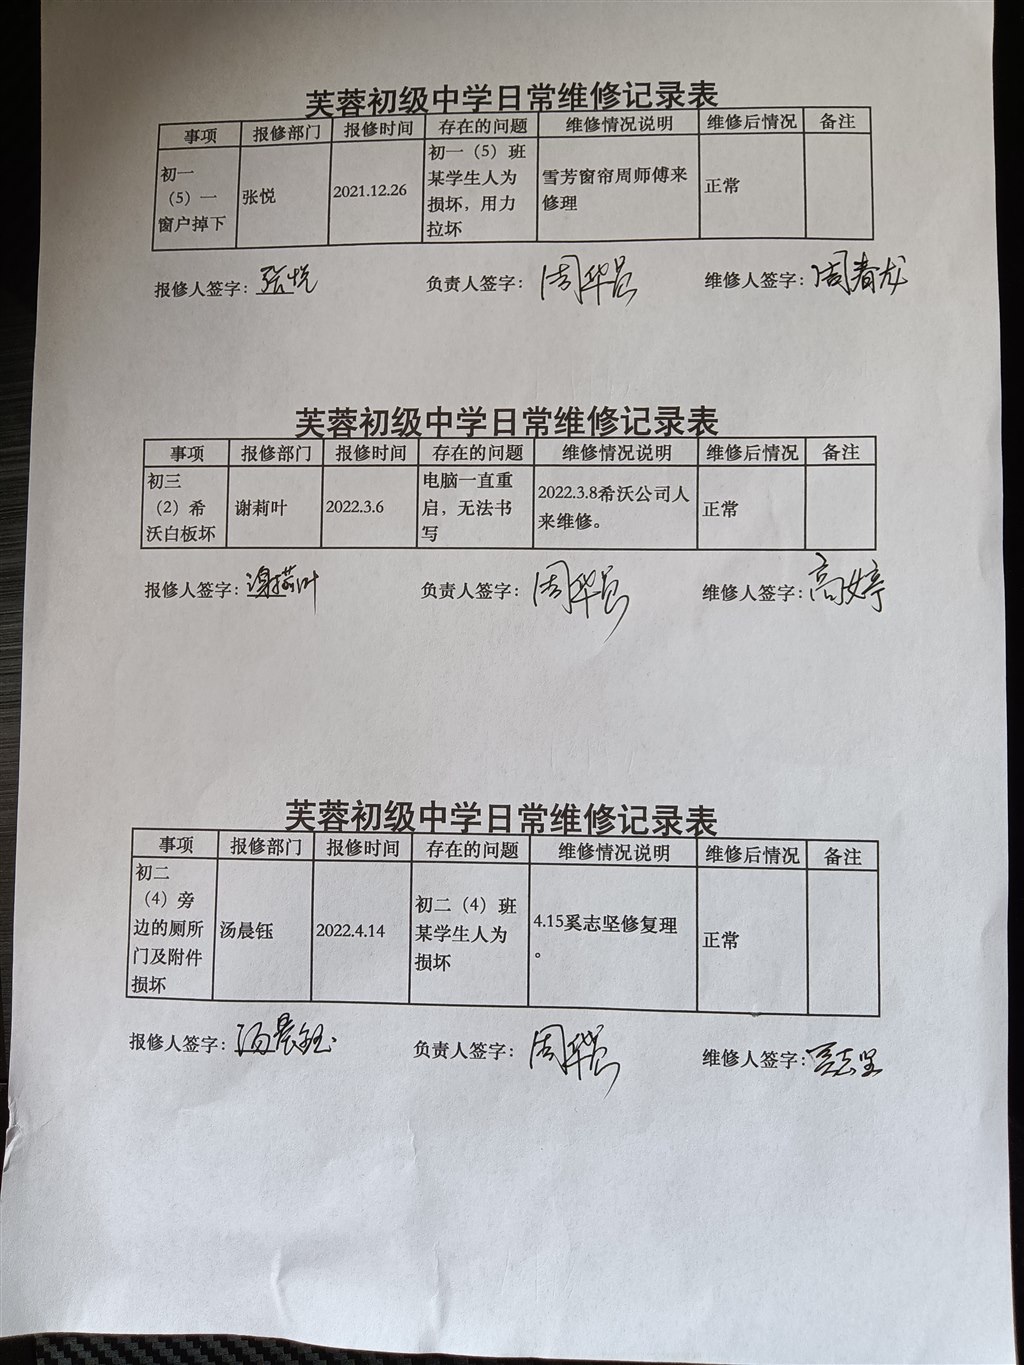 芙蓉初级中学日常维修记录表
事项 报修部门 报修时间 存在的问题 维修情况说明 维修后情况 备注
初一
（5）一
窗户掉下
张悦
2021.12.26
初一（5）班
某学生人为
损坏，用力
拉坏
雪芳窗帘周师傅来
修理
正常
报修人签字：张悦 负责人签字：周华 维修人签字：周春龙
芙蓉初级中学日常维修记录表
事项 报修部门 报修时间 存在的问题 维修情况说明 维修后情况 备注
初三
（2）希
沃白板坏
谢莉叶
2022.3.6
电脑一直重
启，无法书
写
2022.3.8希沃公司人
来维修。
正常
报修人签字：谢莉叶 负责人签字：周华 维修人签字：高婷
芙蓉初级中学日常维修记录表
事项 报修部门 报修时间 存在的问题 维修情况说明 维修后情况 备注
初二
（4）旁
边的厕所
门及附件
损坏
汤晨钰
2022.4.14
初二（4）班
某学生人为
损坏
4.15奚志坚修复理
。
正常
报修人签字：汤晨钰 负责人签字：周华 维修人签字：奚志坚